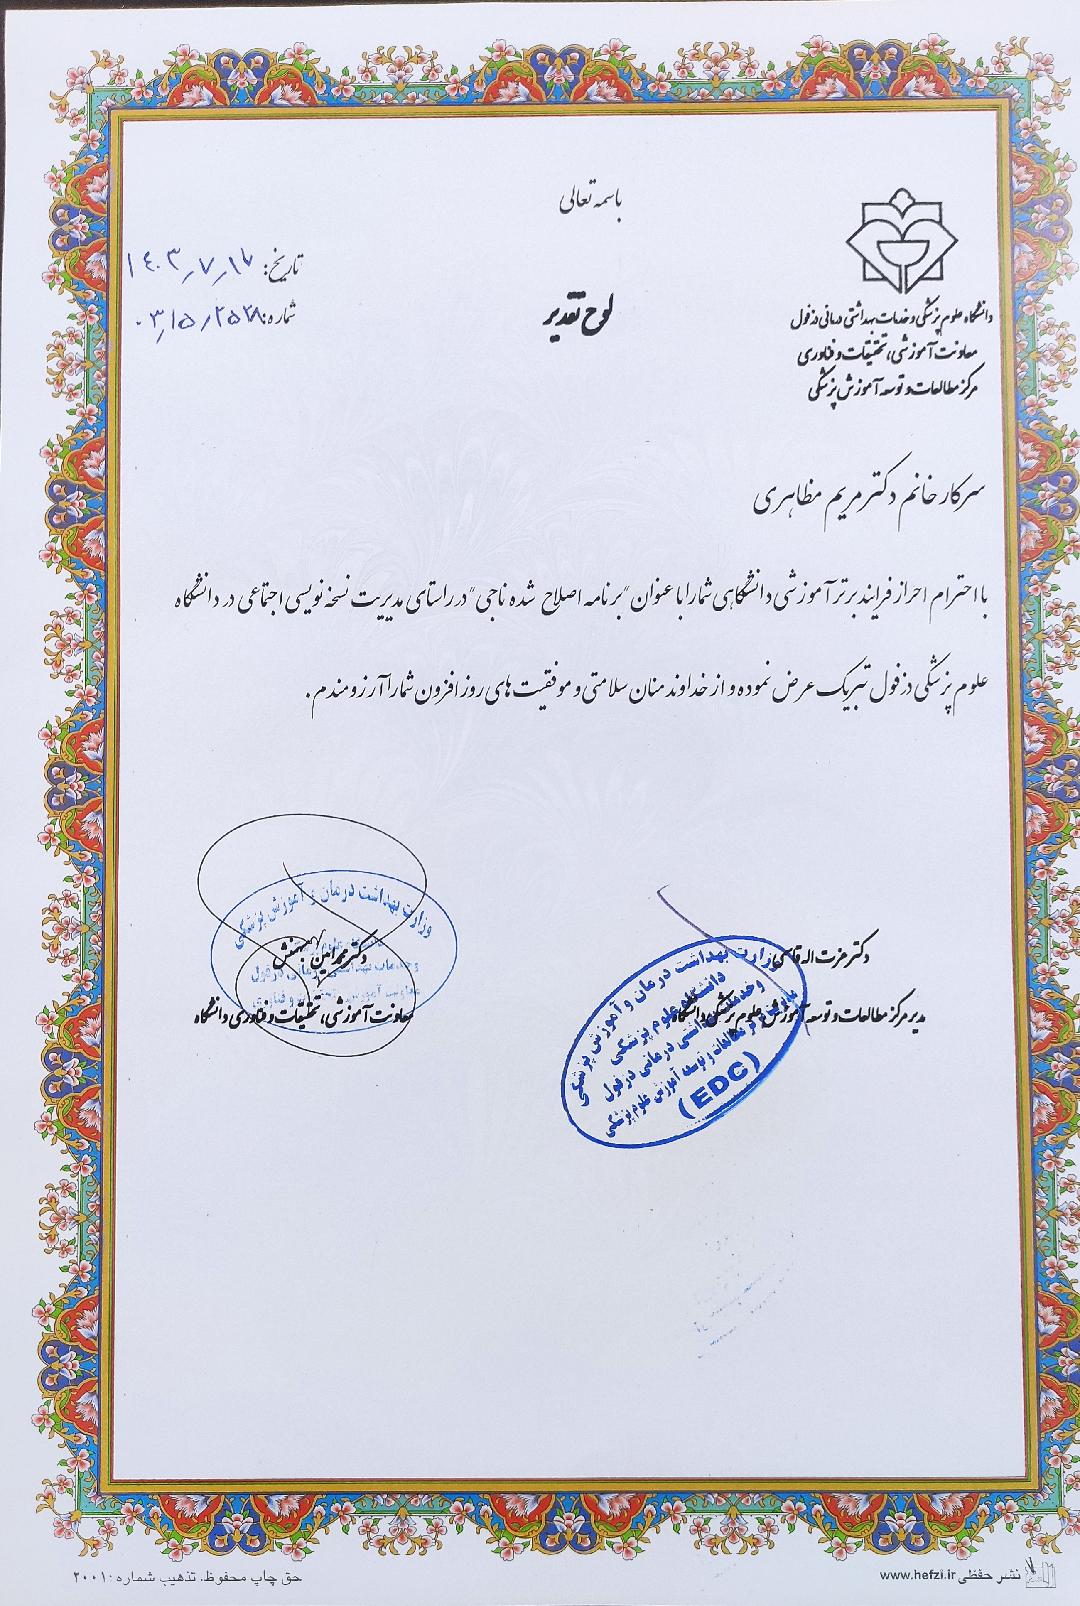 باسمه تعالی
دانشگاه علوم پزشکی و خدمات بهداشتی درمانی دزفول
معاونت آموزشی، تحقیقات و فناوری
مرکز مطالعات و توسعه آموزش پزشکی
تاریخ: ۱۴۰۳/۷/۱۷
شماره:
لوح تقدیر
سرکار خانم دکتر مریم مظاهری
با احترام احراز فرایند برتر آموزشی دانشگاهی شما را با عنوان "برنامه اصلاح شده ناجی" در راستای مدیریت نسخه نویسی اجتماعی در دانشگاه
علوم پزشکی دزفول تبریک عرض نموده و از خداوند منان سلامتی و موفقیت های روز افزون شما را آرزومندم.
دکتر عزت اله قاسمی
مدیر مرکز مطالعات و توسعه آموزش علوم پزشکی دانشگاه
وزارت بهداشت درمان و آموزش پزشکی
دانشگاه علوم پزشکی
و خدمات بهداشتی درمانی دزفول
مرکز مطالعات و توسعه آموزش علوم پزشکی
(EDC)
دکتر محمد امین بهمنش
معاونت آموزشی، تحقیقات و فناوری دانشگاه
وزارت بهداشت درمان و آموزش پزشکی
نشر حفظی www.hefzi.ir
حق چاپ محفوظ. تذهیب شماره: ۲۰۰۱۰